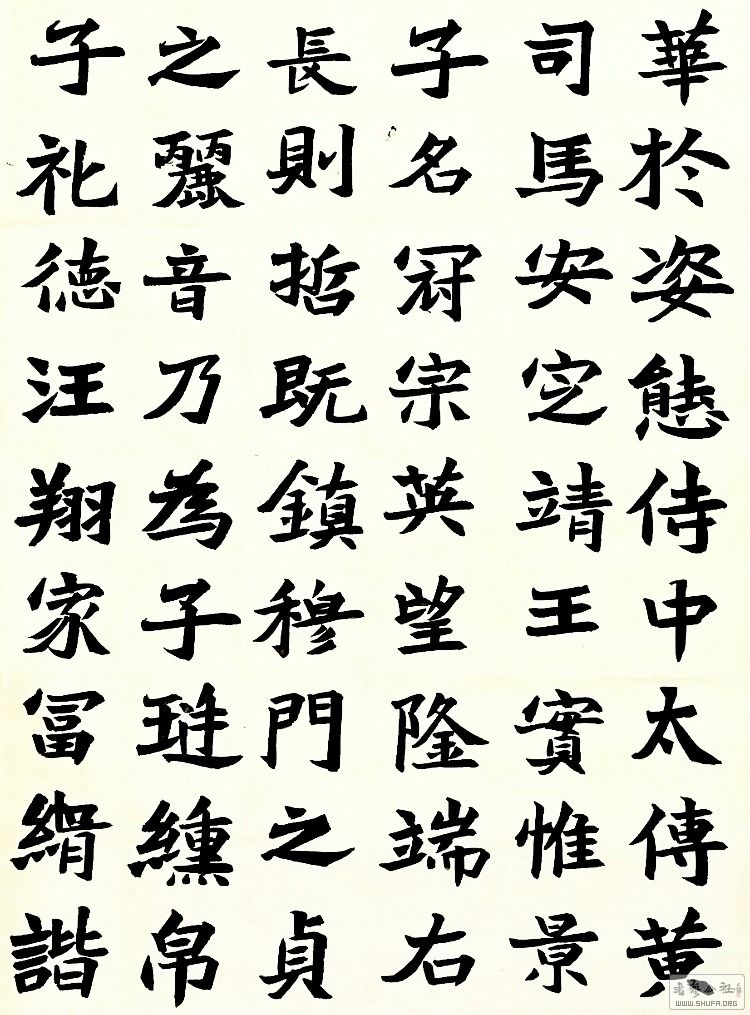 華於姿態侍中太傅黃
司馬安定靖王實惟景
子名冠宗英望隆端右
長則哲既鎮穆門之貞
之麗音乃為子琏纁帛
子礼德汪翔家冨縎諧
WWW.SHUFA.ORG